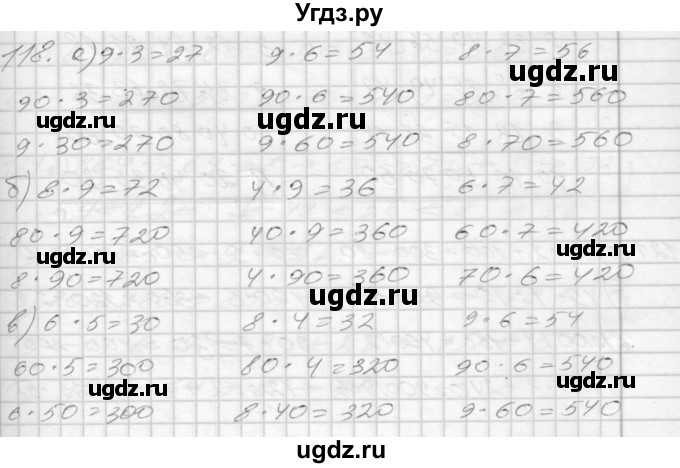 Угдз.ру
118. а) 9·3=27 9·6=54 8·7=56
ugdz.ru
90·3=270 90·6=540 80·7=560
ugdz.ru ugdz.ru ugdz.ru
9·30=270 9·60=540 8·70=560
б) 8·9=72 4·9=36 6·7=42
80·9=720 40·9=360 60·7=420
ugdz.ru
8·90=720 4·90=360 70·6=420
ugdz.ru
в) 6·5=30 8·4=32 9·6=54
60·5=300 80·4=320 90·6=540
ugdz.ru ugdz.ru
6·50=300 8·40=320 9·60=540
ugdz.ru